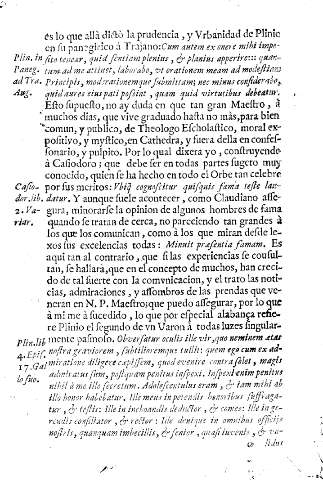 és lo que allá dictò la prudencia, y Vrbanidad de Plinio
en su panegirico á Trajano: Cum autem ex onere mihi impo-
Plin. in sito tenear, quid sentiam plenius, & planius apperire:::::quan-
Paneg. tum ad me attinet, laborabo, vt orationem meam ad modestiam
ad Tra. Principis, moderationemque submittam; nec minus considerabo,
Aug. quid aures eius pati possint, quam quid virtutibus debeatur.
Esto supuesto, no ay duda en que tan gran Maestro, á
muchos dias, que vive graduado hasta no màs, para bien
comun, y publico, de Theologo Escholastico, moral ex-
positivo, y mystico, en Cathedra, y fuera della en confes-
sonario, y pulpito. Por lo qual dixera yo, construyendo
à Casiodoro: que debe ser en todas partes sugeto muy
conocido, quien se ha hecho en todo el Orbe tan celebre
Casio- por sus meritos: Vbiq́; cognoscitur quisquis fama teste lau-
dor. lib. datur. Y aunque suele acontecer, como Claudiano asse-
2. Va- gura, minorarse la opinion de algunos hombres de fama
riar. quando se tratan de cerca, no pareciendo tan grandes à
los que los comunican, como à los que miran desde le-
xos sus excelencias todas: Minuit præsentia famam. Es
aqui tan al contrario, que si las experiencias se consul-
tan, se hallará, que en el concepto de muchos, han creci-
do de tal suerte con la comvnicacion, y el trato las noti-
cias, admiraciones, y assombros de las prendas que ve-
neran en N. P. Maestro; que puedo assegurar, por lo que
à mi me à sucedido, lo que por especial alabança refie-
re Plinio el segundo de vn Varon à todas luzes singular-
Plin. lib. mente pasmoso. Obversatur oculis ille vir, quo neminem ætas
4. Epist. nostra graviorem, subtilioremque tulit: quem ego cum ex ad-
17. Gal miratione diligere cæpissem, quod evenire contra solet, magis
lo suo. admiratus sum, postquam penitus inspexi. Inspexi enim penitus
nihil à me ille secretum. Adolescentulus eram, & iam mihi ab
illo honor habebatur. Ille meus in petendis honoribus suffraga-
tor, & testis: Ille in inchoandis deductor, & comes: Ille in ge-
rendis consiliator, & rector: Ille denique in omnibus officijs
nostris, quanquam imbecillis, & senior, quasi iuvenis, & va-
lidus